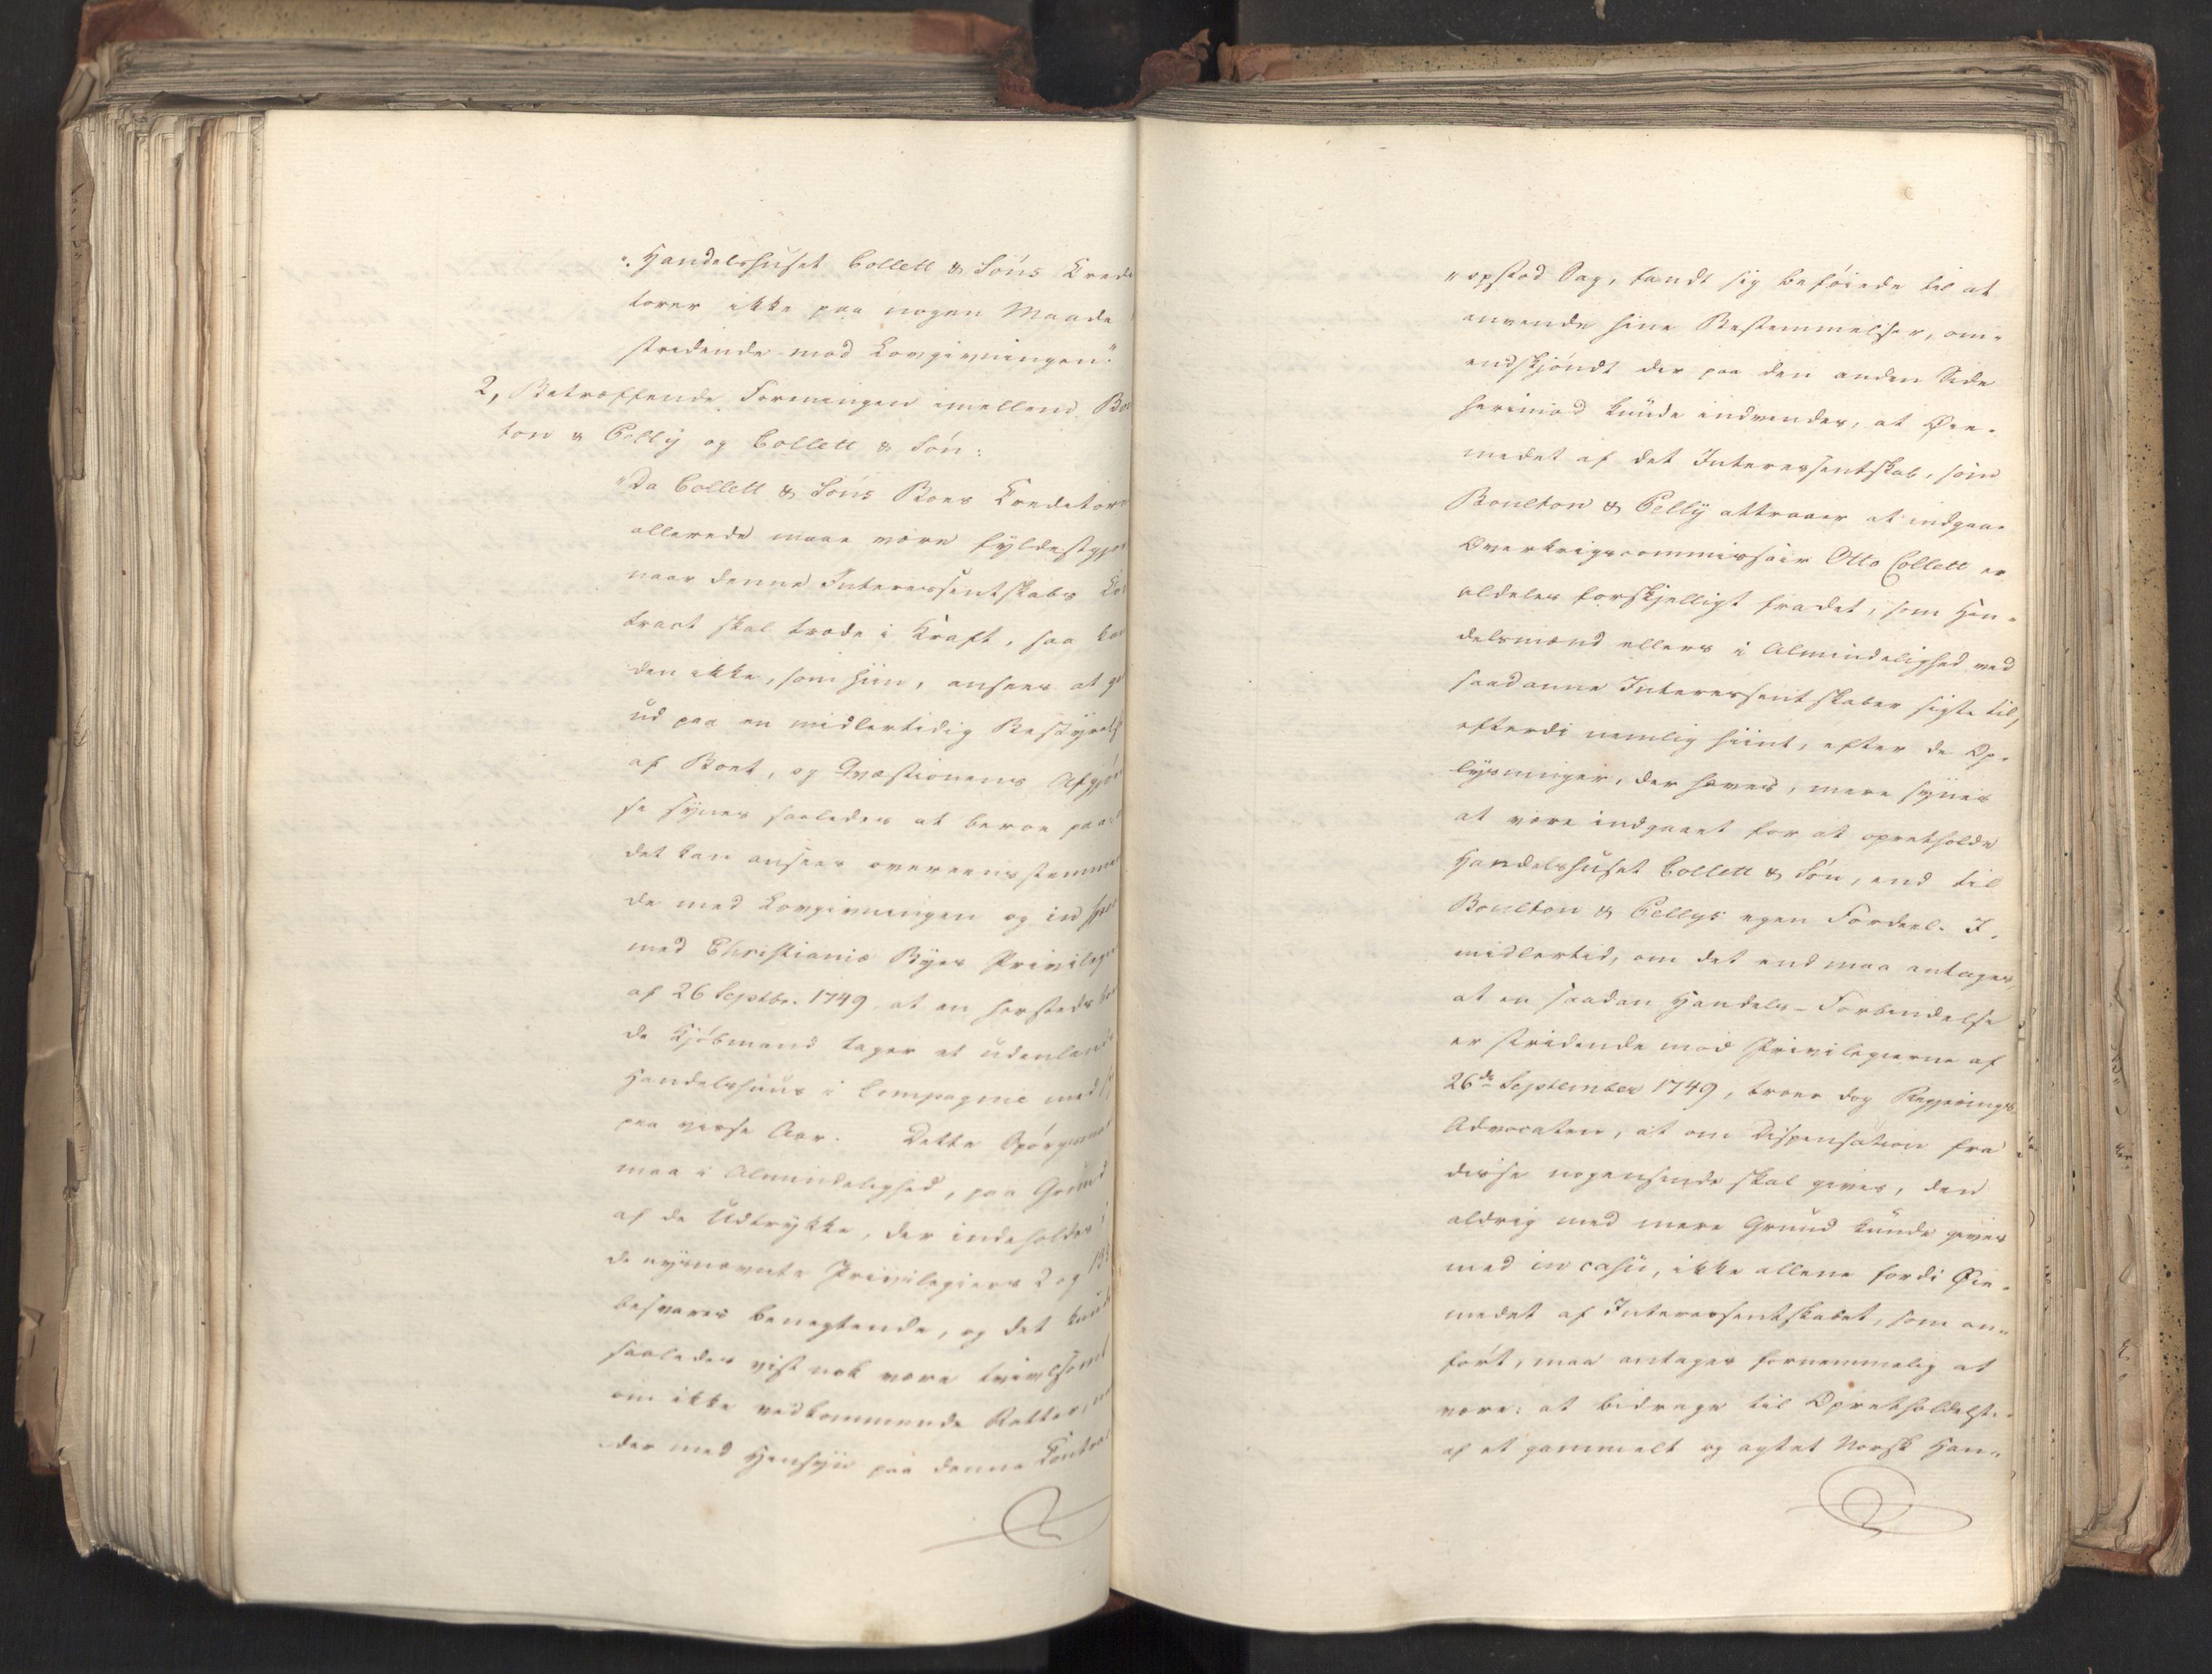 "Handelshuset Collett & Söns Kredi
torer ikke paa nogen Maade
stridende mod Lovgivningen."
2, Betræffende Foreningen imellem Bo
ton & Pelly og Collett & Sön:
"Da Collett & Söns Boes Creditorer
allerede maae være fyldestgjor
naar denne Interessentskabs Co
tract skal træde i Kraft, saa kan
den ikke, som hiin, ansees at ga
ud paa en midlertidig Bestyrelse
af Boet, og Qvæstionens Afgjör
se synes saaledes at beroe paa:
det kan ansees overeensstemmen
de med Lovgivningen og in spec
med Christiania Byes Privilegie
af 26 Septbr. 1749, at en hersteds boe
de Kjöbmand tager et udenlands
Handelshuus i Compagnie med s
paa visse Aar. Dette Spörgsmaal
maa i Almindelighed, paa Grund
af de Udtrykke, der indeholdes i
de nysnævnte Privilegiers 2 og 13
besvares benegtende, og det kunde
saaledes vist nok være tvivlsomt
om ikke vedkommende Retter, na
der med Hensyn paa denne Contrac
"opstod Sag, fandt sig beföiede til at
anvende hine Bestemmelser, om-
endskjöndt der paa den anden Side
herimod kunde indvendes, at Öie-
medet af det Interessentskab, som
Boulton & Pelly attraaer at indgaa
Overkrigscommissair Otto Collett er
aldeles forskjelligt fra det, som Han-
delsmænd ellers i Almindelighed ved
saadanne Interessentskaber sigte til,
efterdi nemlig hiint, efter de Op-
lysninger, der haves, mere synes
at være indgaaet for at opretholde
Handelshuset Collett & Sön, end til
Boulton & Pellys egen Fordeel. I-
midlertid, om det end maa antages,
at en saadan Handels-Forbindelse
er stridende mod Privilegierne af
26de September 1749, troer dog Regjerings
Advocaten, at om Dispensation fra
disse nogensinde skal gives, den
aldrig med mere Grund kunde gives
end in casu, ikke allene fordi Öie-
medet af Interessentskabet, som an-
fört, maa antages fornemmelig at
være: at bidrage til Opretholdelse
af et gammelt og agtet Norsk Han-